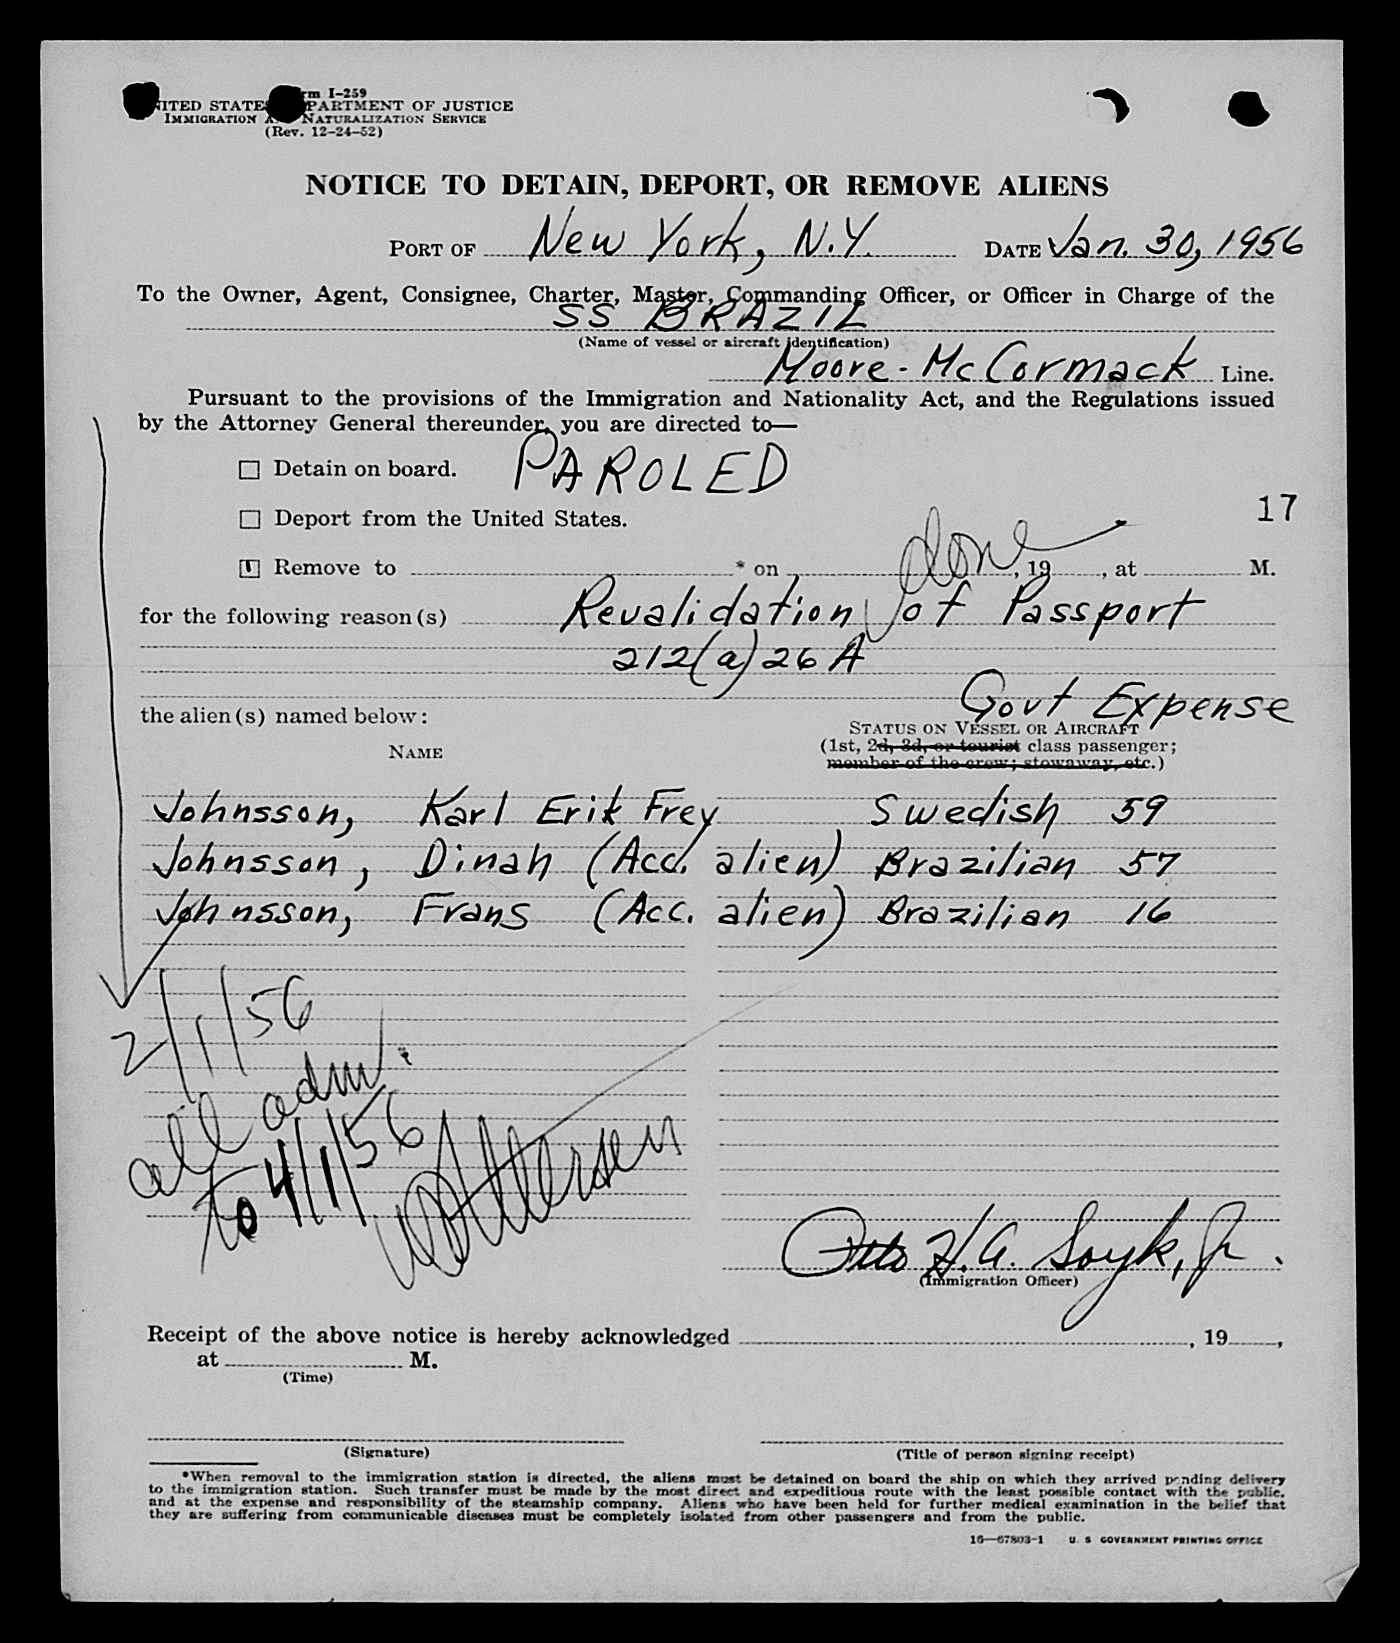 rm I-259
ITED STATE PARTMENT OF JUSTICE
IMMIGRATION A NATURALIZATION SERVICE
(Rev. 12-24-52)
NOTICE TO DETAIN, DEPORT, OR REMOVE ALIENS
PORT OF New York, N.Y. DATE Jan. 30, 1956
To the Owner, Agent, Consignee, Charter, Master, Commanding Officer, or Officer in Charge of the
SS BRAZIL
(Name of vessel or aircraft identification)
Moore-McCormack Line.
Pursuant to the provisions of the Immigration and Nationality Act, and the Regulations issued
by the Attorney General thereunder, you are directed to—
☐ Detain on board. PAROLED
☐ Deport from the United States. 17
☑ Remove to * on done, 19, at M.
for the following reason(s) Revalidation of Passport
212(a)26A
Govt Expense
the alien(s) named below:
STATUS ON VESSEL OR AIRCRAFT
NAME (1st, 2d, 3d, or tourist class passenger;
member of the crew; stowaway, etc.)
Johnsson, Karl Erik Frey Swedish 59
Johnsson, Dinah (Acc. alien) Brazilian 57
Johnsson, Frans (Acc. alien) Brazilian 16
2/1/56
all adm.
to 4/1/56
Otto H.A. Soyk, Jr.
(Immigration Officer)
Receipt of the above notice is hereby acknowledged , 19 ,
at M.
(Time)
(Signature) (Title of person signing receipt)
*When removal to the immigration station is directed, the aliens must be detained on board the ship on which they arrived pending delivery
to the immigration station. Such transfer must be made by the most direct and expeditious route with the least possible contact with the public,
and at the expense and responsibility of the steamship company. Aliens who have been held for further medical examination in the belief that
they are suffering from communicable diseases must be completely isolated from other passengers and from the public.
16—67803-1 U. S GOVERNMENT PRINTING OFFICE